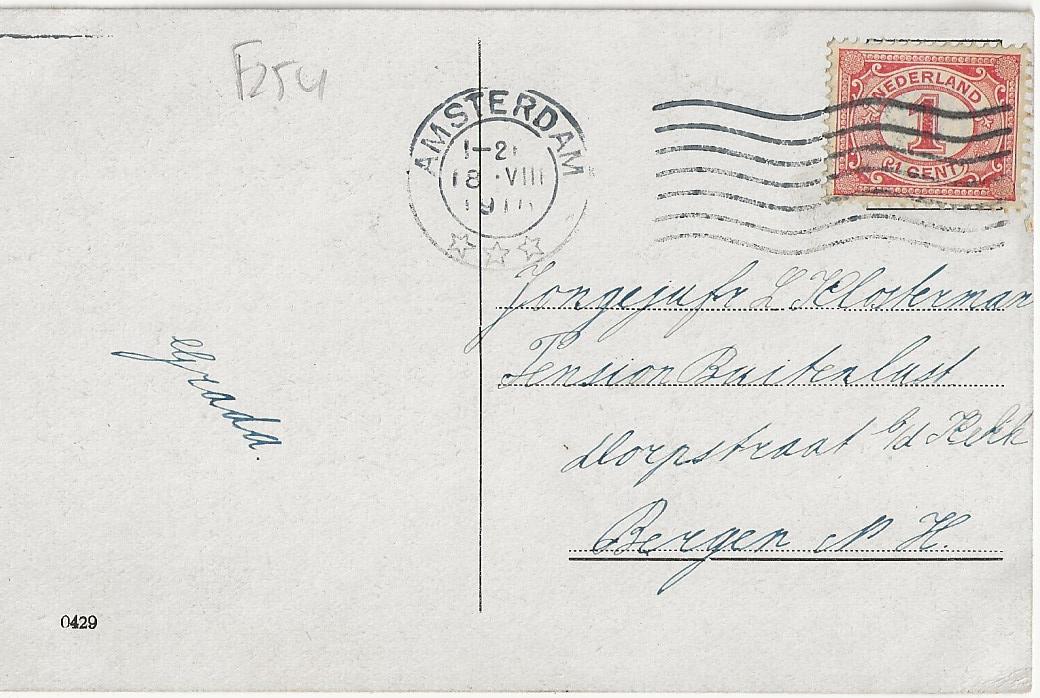 F254
AMSTERDAM
1-2
18 VIII
NEDERLAND
1
1 CENT
Jongejufr L Klosterman
Pension Buitenlust
dorpstraat b/d Kerk
Bergen N H.
Grada.
0429